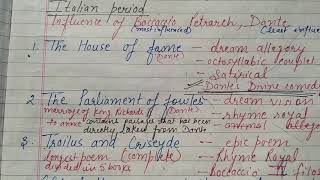 Italian period
Influence of Boccaccio Petrarch, Dante
(most influenced) (least influe
1. The House of fame — dream allegory
(Dante) — octosyllabic couplet
— Satirical
Dante's Divine comedy
2. The Parliament of fowles — dream vision
marriage of King Richard II (Dante's) — rhyme royal
to anne contains passages that has been — animal alleg
directly taken from Dante
3. Troilus and Criseyde — epic poem
longest poem (complete) — Rhyme Royal
divided in 5 books — boccaccio Il filos